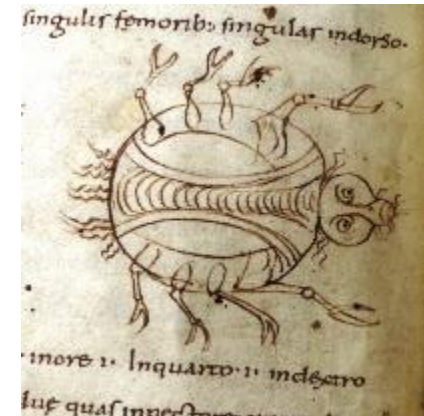 singulis femorib; singulas indorso.
inore 1. Inquarto. 1. indextro
due quas inpectore